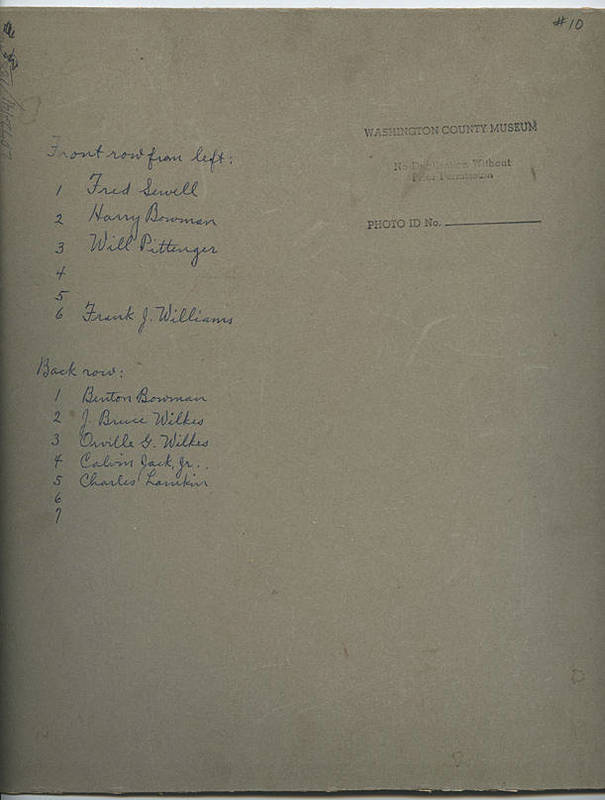 #10
WASHINGTON COUNTY MUSEUM
No Duplication Without
Prior Permission
PHOTO ID No.
Front row from left:
1 Fred Sewell
2 Harry Bowman
3 Will Pittenger
4
5
6 Frank J. Williams
Back row:
1 Benton Bowman
2 J. Bruce Wilkes
3 Orville G. Wilkes
4 Calvin Jack, Jr..
5 Charles Lamkin
6
7